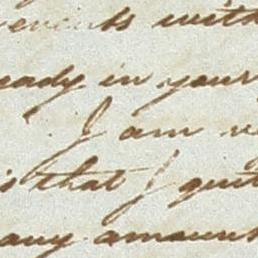 events with
eady in your
I am
is that I quit
any amount